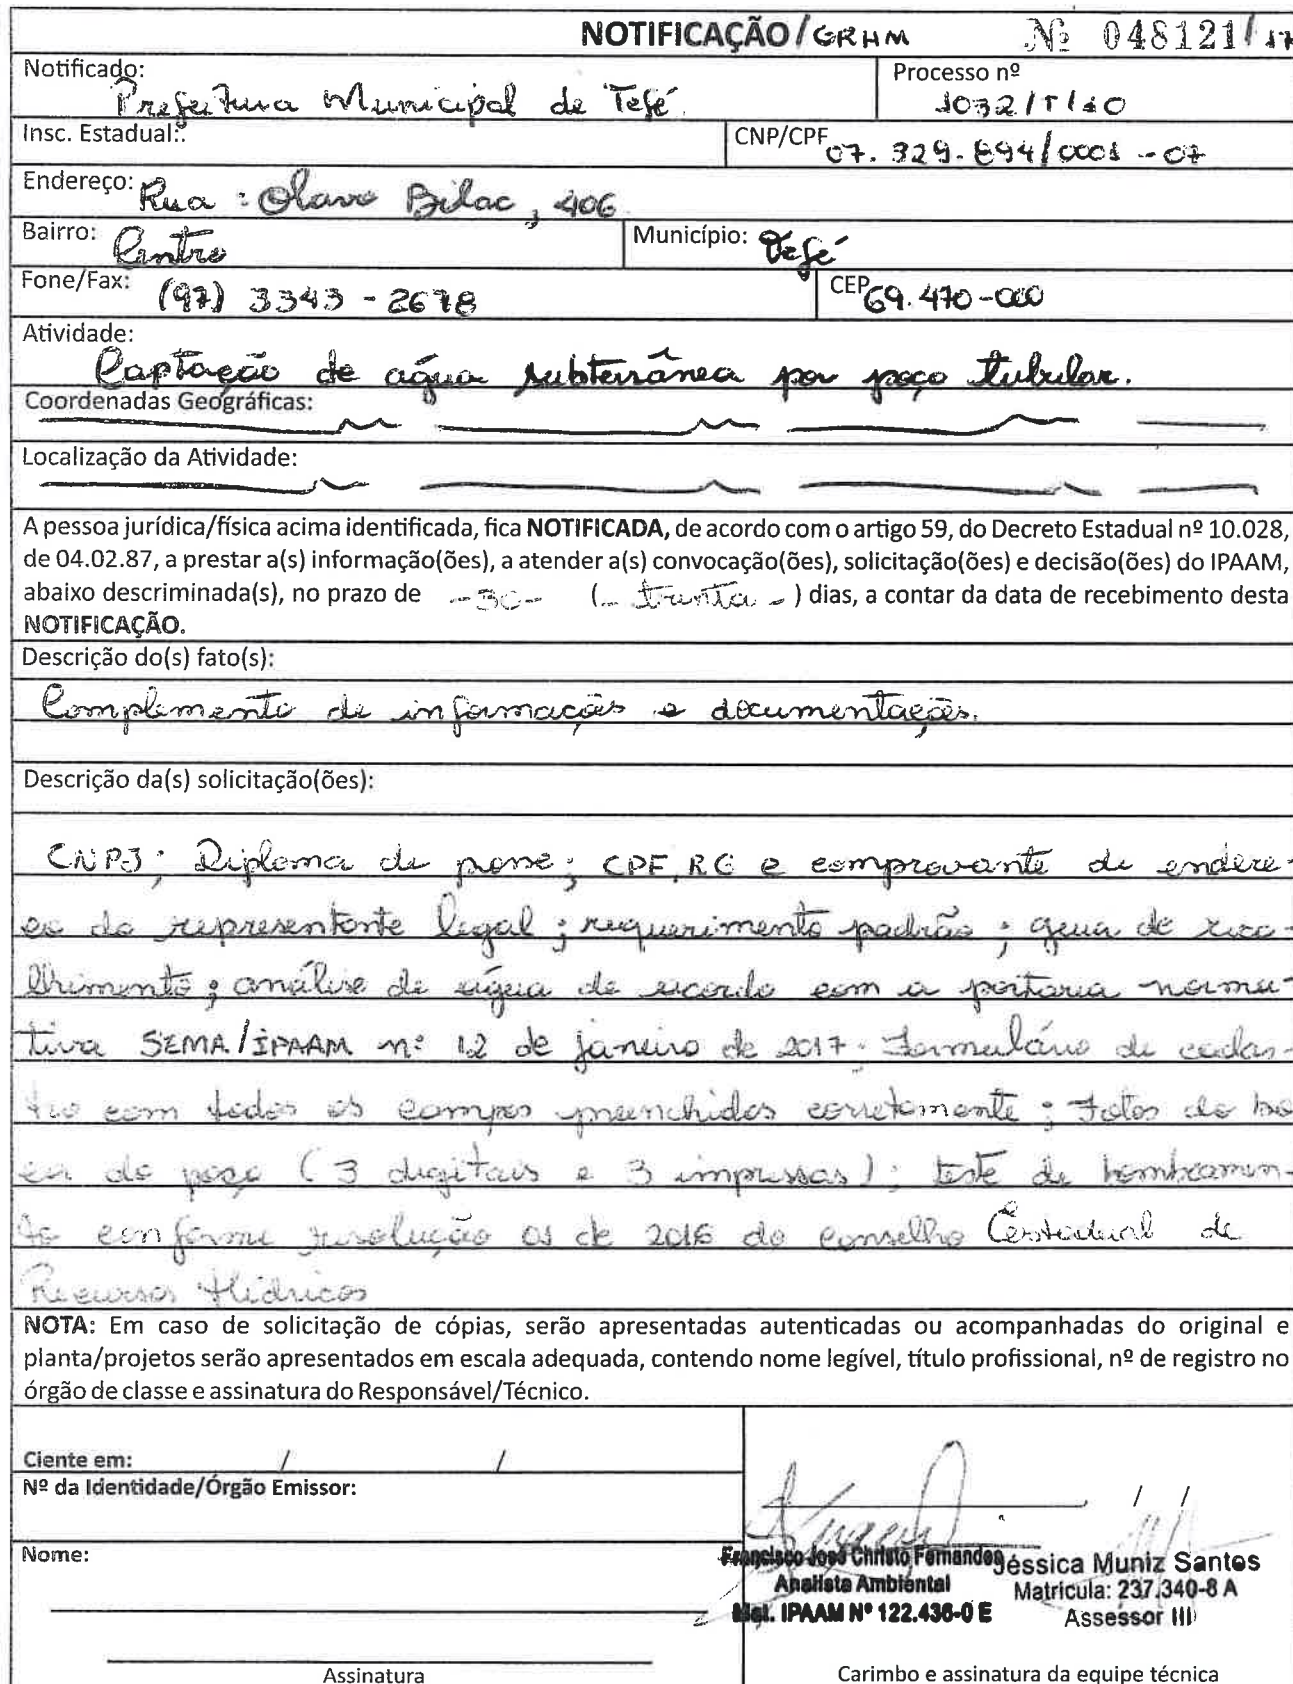 NOTIFICAÇÃO/GRHM Nº 048121/17
Notificado: Prefeitura Municipal de Tefé.
Processo nº 1032/T/10
Insc. Estadual:
CNP/CPF 07.329.894/0001-07
Endereço: Rua: Olavo Bilac, 406
Bairro: Centro
Município: Tefé
Fone/Fax: (97) 3343-2678
CEP 69.470-000
Atividade:
Captação de água subterrânea por poço tubular.
Coordenadas Geográficas:
Localização da Atividade:
A pessoa jurídica/física acima identificada, fica NOTIFICADA, de acordo com o artigo 59, do Decreto Estadual nº 10.028,
de 04.02.87, a prestar a(s) informação(ões), a atender a(s) convocação(ões), solicitação(ões) e decisão(ões) do IPAAM,
abaixo descriminada(s), no prazo de -30- (- trinta -) dias, a contar da data de recebimento desta
NOTIFICAÇÃO.
Descrição do(s) fato(s):
Complemento de informações e documentações.
Descrição da(s) solicitação(ões):
CNPJ; Diploma de posse; CPF, RG e comprovante de endere-
ço do representante legal; requerimento padrão; guia de reco-
lhimento; análise de água de acordo com a portaria norma-
tiva SEMA/IPAAM nº 12 de janeiro de 2017; Formulário de cadas-
tro com todos os campos preenchidos corretamente; Fotos da bo
ca do poço (3 digitais e 3 impressas); teste de bombeamen-
to conforme resolução 01 de 2016 do conselho Estadual de
Recursos Hídricos
NOTA: Em caso de solicitação de cópias, serão apresentadas autenticadas ou acompanhadas do original e
planta/projetos serão apresentados em escala adequada, contendo nome legível, título profissional, nº de registro no
órgão de classe e assinatura do Responsável/Técnico.
Ciente em: / /
Nº da Identidade/Órgão Emissor:
Nome:
Assinatura
, / /
Francisco José Christo Fernandes
Analista Ambiental
Mat. IPAAM Nº 122.436-0 E
Jéssica Muniz Santos
Matricula: 237.340-8 A
Assessor III
Carimbo e assinatura da equipe técnica